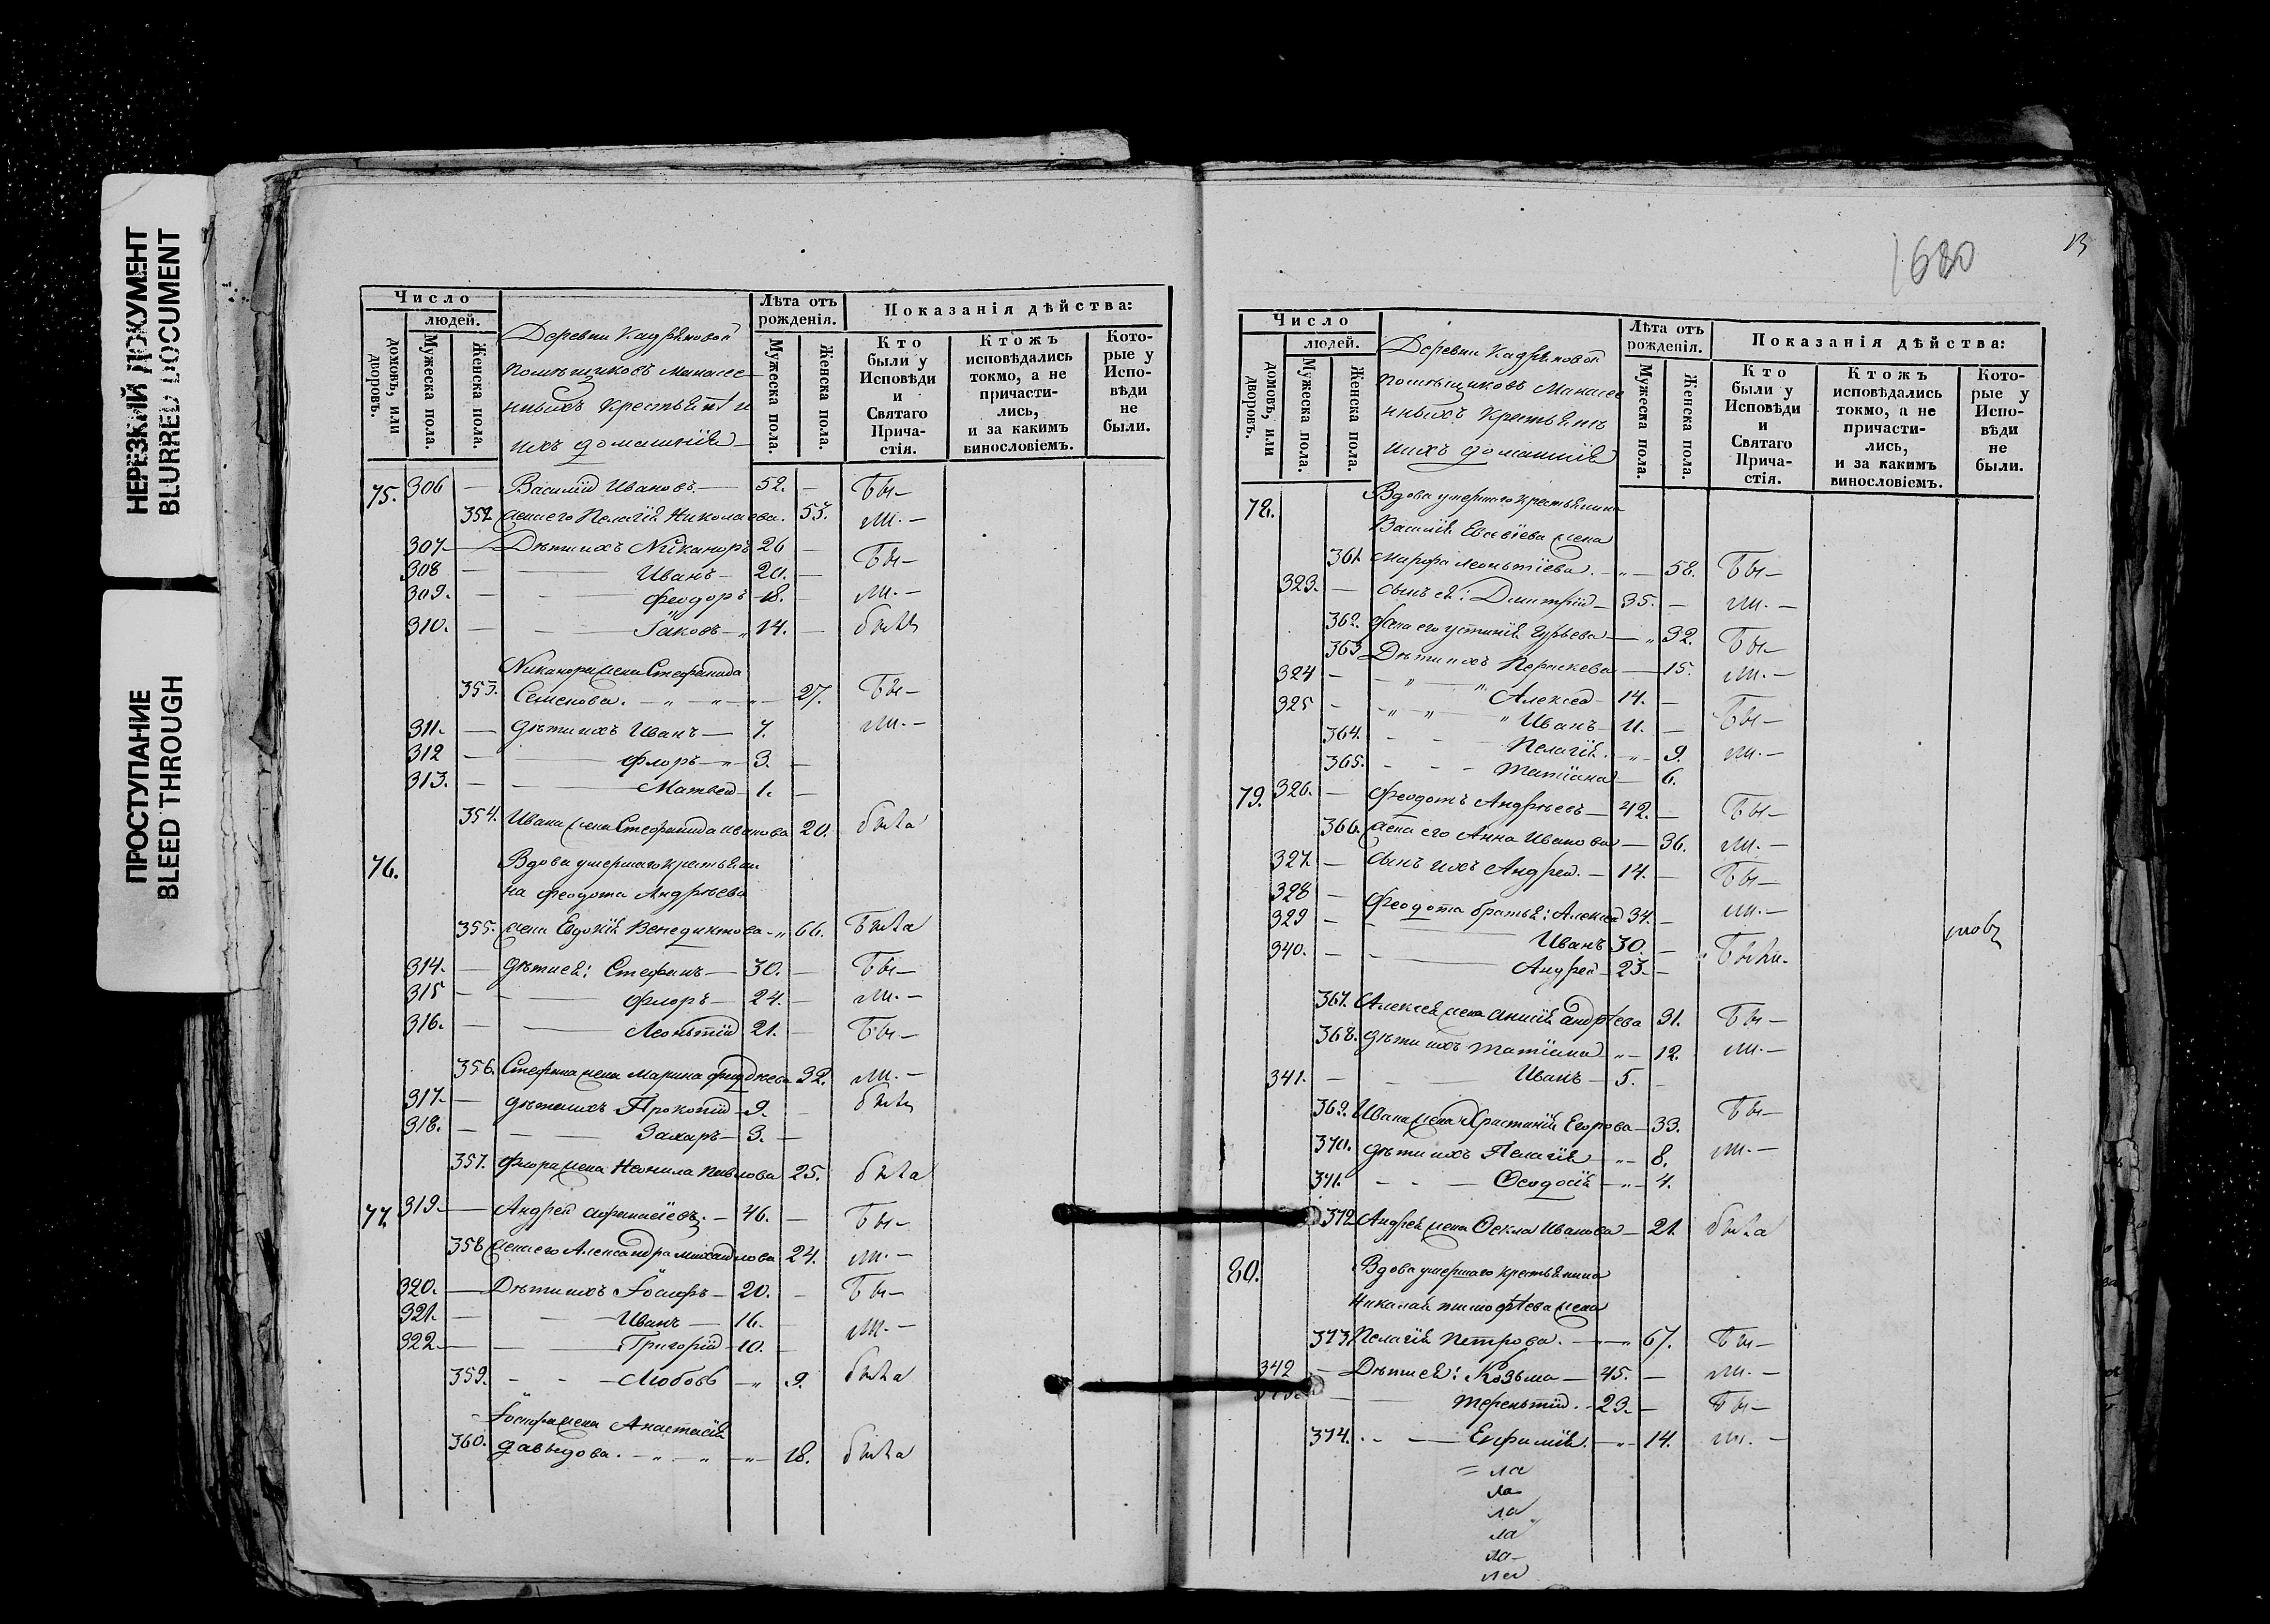 НЕРЕЗКИЙ ДОКУМЕНТ
BLURRED DOCUMENT
ПРОСТУПАНИЕ
BLEED THROUGH
Число
людей.
домовъ, или дворовъ.
Мужеска пола.
Женска пола.
Деревни
помѣщиковъ
крестьянъ и
ихъ домашнія
Лѣта отъ рожденія.
Мужеска пола.
Женска пола.
Показанія дѣйства:
Кто были у Исповѣди и Святаго Прича- стія.
Ктожъ исповѣдались токмо, а не причасти- лись, и за какимъ винословіемъ.
Кото- рые у Испо- вѣди не были.
75. 306 — Василій Ивановъ. — 52. — Бы—
352 жена его Пелагія Николаева. 53. ли. —
307 — Дѣти ихъ Никаноръ 26 —
308 — Иванъ — 20. — Бы—
309. — Феодоръ — 18. — ли. —
310. — Іаковъ — 14. — были
Никанора жена Стефанида
353. Семенова. — 27. Бы—
311. — дѣти ихъ Иванъ — 7. ли. —
312 — Флоръ — 3. —
313. — Матвей — 1. —
354. Ивана жена Стефанида Иванова 20. была
76. Вдова умершаго крестьяни
на Феодота Андрѣева
355. жена Евдокія Венедиктова — 66. Была
314. — дѣти ея: Стефанъ — 30. — Бы—
315 — Флоръ — 24. — ли. —
316. — Леонтій 21. — Бы—
356. Стефана жена Марина 32. ли. —
317. — дѣти ихъ Прокопій — 9. — были
318. — Захаръ — 3. —
357. Флора жена Неонила Павлова 25. была
77. 319. — Андрей — 46. — Бы—
358 жена его Александра Михайлова 24. ли. —
320. — Дѣти ихъ Іосифъ — 20. — Бы—
321. — Иванъ — 16. — ли. —
322 — Григорій — 10. —
359. — Любовь — 9. была
Іосифа жена Анастасія
360. Давыдова. — 18. была
1680
13
Число
людей.
домовъ, или дворовъ.
Мужеска пола.
Женска пола.
Деревни
помѣщиковъ
крестьянъ
и ихъ домашнія
Лѣта отъ рожденія.
Мужеска пола.
Женска пола.
Показанія дѣйства:
Кто были у Исповѣди и Святаго Прича- стія.
Ктожъ исповѣдались токмо, а не причасти- лись, и за какимъ винословіемъ.
Кото- рые у Испо- вѣди не были.
78. Вдова умершаго крестьянина
Василія Евсевіева жена
361. Марфа Леонтіева. — 58. Бы—
323. — сынъ ея: Димитрій — 35. — ли. —
362. жена его Устинія Гурьева — 32. Бы—
363 Дѣти ихъ Параскева — 15. ли. —
324 — Алексей — 14. —
325 — Иванъ — 11. — Бы—
364. — Пелагія. — 9. ли. —
365. — Татіана — 6.
79. 326. — Феодотъ Андрѣевъ — 42. — Бы—
366. жена его Анна Иванова — 36. ли. —
327. — сынъ ихъ Андрей. — 14. — Бы—
328 — Феодота братья: Алексей 34. — ли. —
329 — Иванъ 30. —
340. — Андрей — 23. — Были.
367. Алексея жена Андрѣева 31. Бы—
368. дѣти ихъ Татіана — 12. ли. —
341. — Иванъ — 5. —
369. Ивана жена Христинія Егорова — 33. Бы—
370. дѣти ихъ Пелагія — 8. ли. —
371. — Ѳеодосія — 4.
372 Андрея жена Ѳекла Иванова — 21. была
80. Вдова умершаго крестьянина
Николая Тимофѣева жена
373. Пелагія Петрова. — 67. Бы—
342 — Дѣти ея: Козьма — 45. — ли. —
Терентій. — 23. — Бы—
374. — Евфимія. — 14. ли. —
= ла
ла
ла
ла
ла
ла